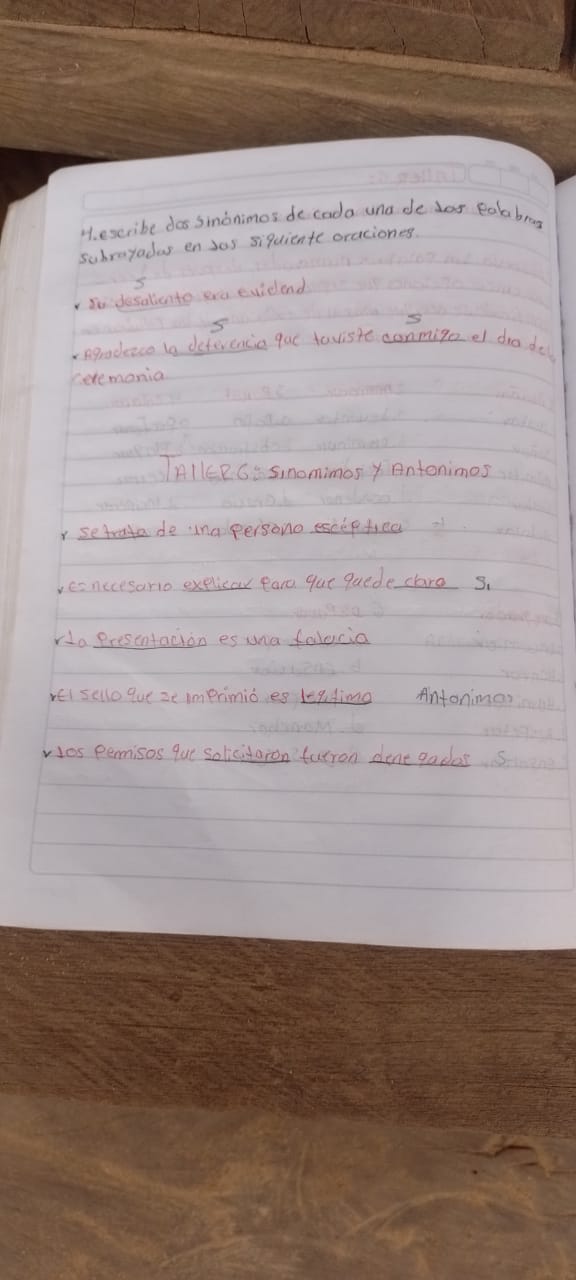 4. escribe dos sinónimos de cada una de las palabras
subrayadas en las siguiente oraciones.
s
Su desaliento era evidend
s s
Agradezco la deferencia que tuviste conmigo el dia de
ceremonia
TAllER 6: sinomimos y Antonimos
se trata de una persona escéptica
es necesario explicar para que quede claro S,
la presentación es una falacia
El sello que se imprimió es legitimo Antonimos
los permisos que solicitaron fueron dene gadas S